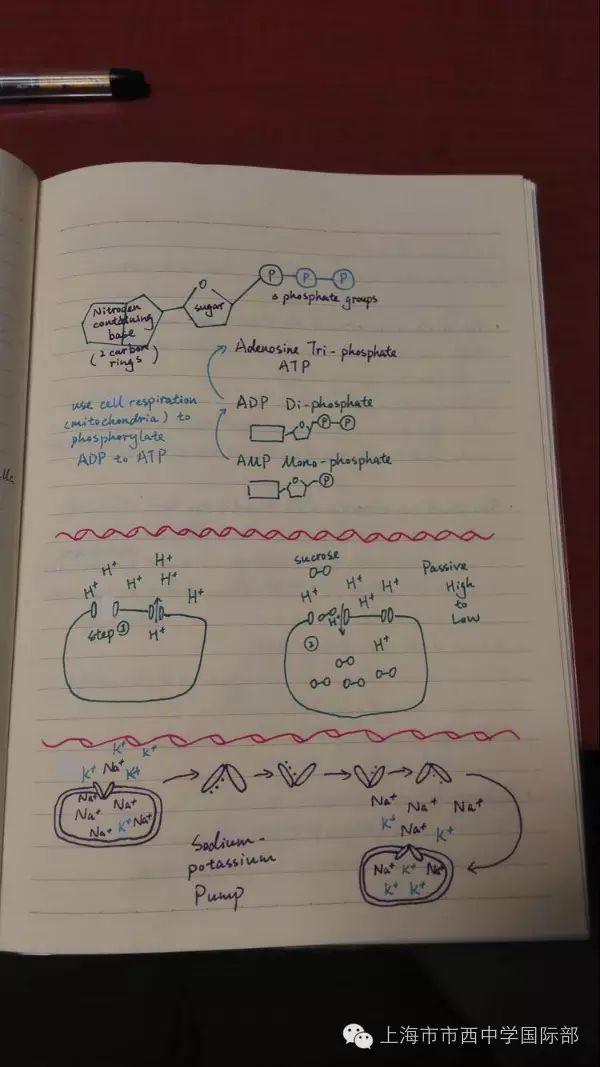 P P P
Nitrogen
containing
base
(2 carbon
rings)
O
sugar
3 phosphate groups
Adenosine Tri-phosphate
ATP
use cell respiration
(mitochondria) to
phosphorylate
ADP to ATP
ADP Di-phosphate
P P
AMP Mono-phosphate
P
H+ H+ H+ H+ H+ H+
step ①
H+
sucrose
H+ H+ H+ H+
H+
②
H+
Passive
High
to
Low
K+ K+
K+ Na+ K+
Na+
Na+ Na+
Na+ K+ Na+
Sodium-
potassium
Pump
Na+ Na+ Na+
K+ Na+ K+
Na+ K+ Na+
K+ K+
上海市市西中学国际部